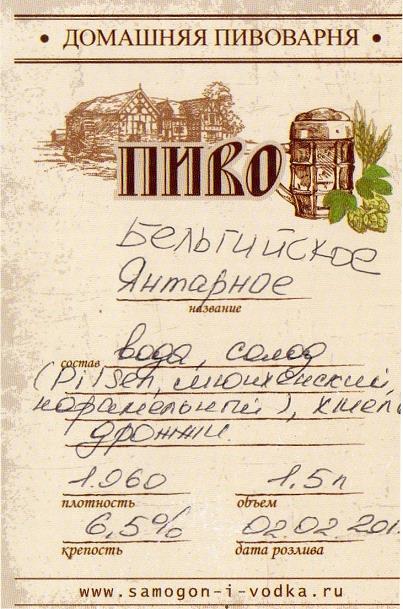 • ДОМАШНЯЯ ПИВОВАРНЯ •
ПИВО
Бельгийское
Янтарное
название
состав вода, солод
(Pilsen, мюнхенский,
карамельный), хмель
дрожжи.
1.060 1,5л
плотность объем
6,5% 02.02.201
крепость дата розлива
www.samogon-i-vodka.ru